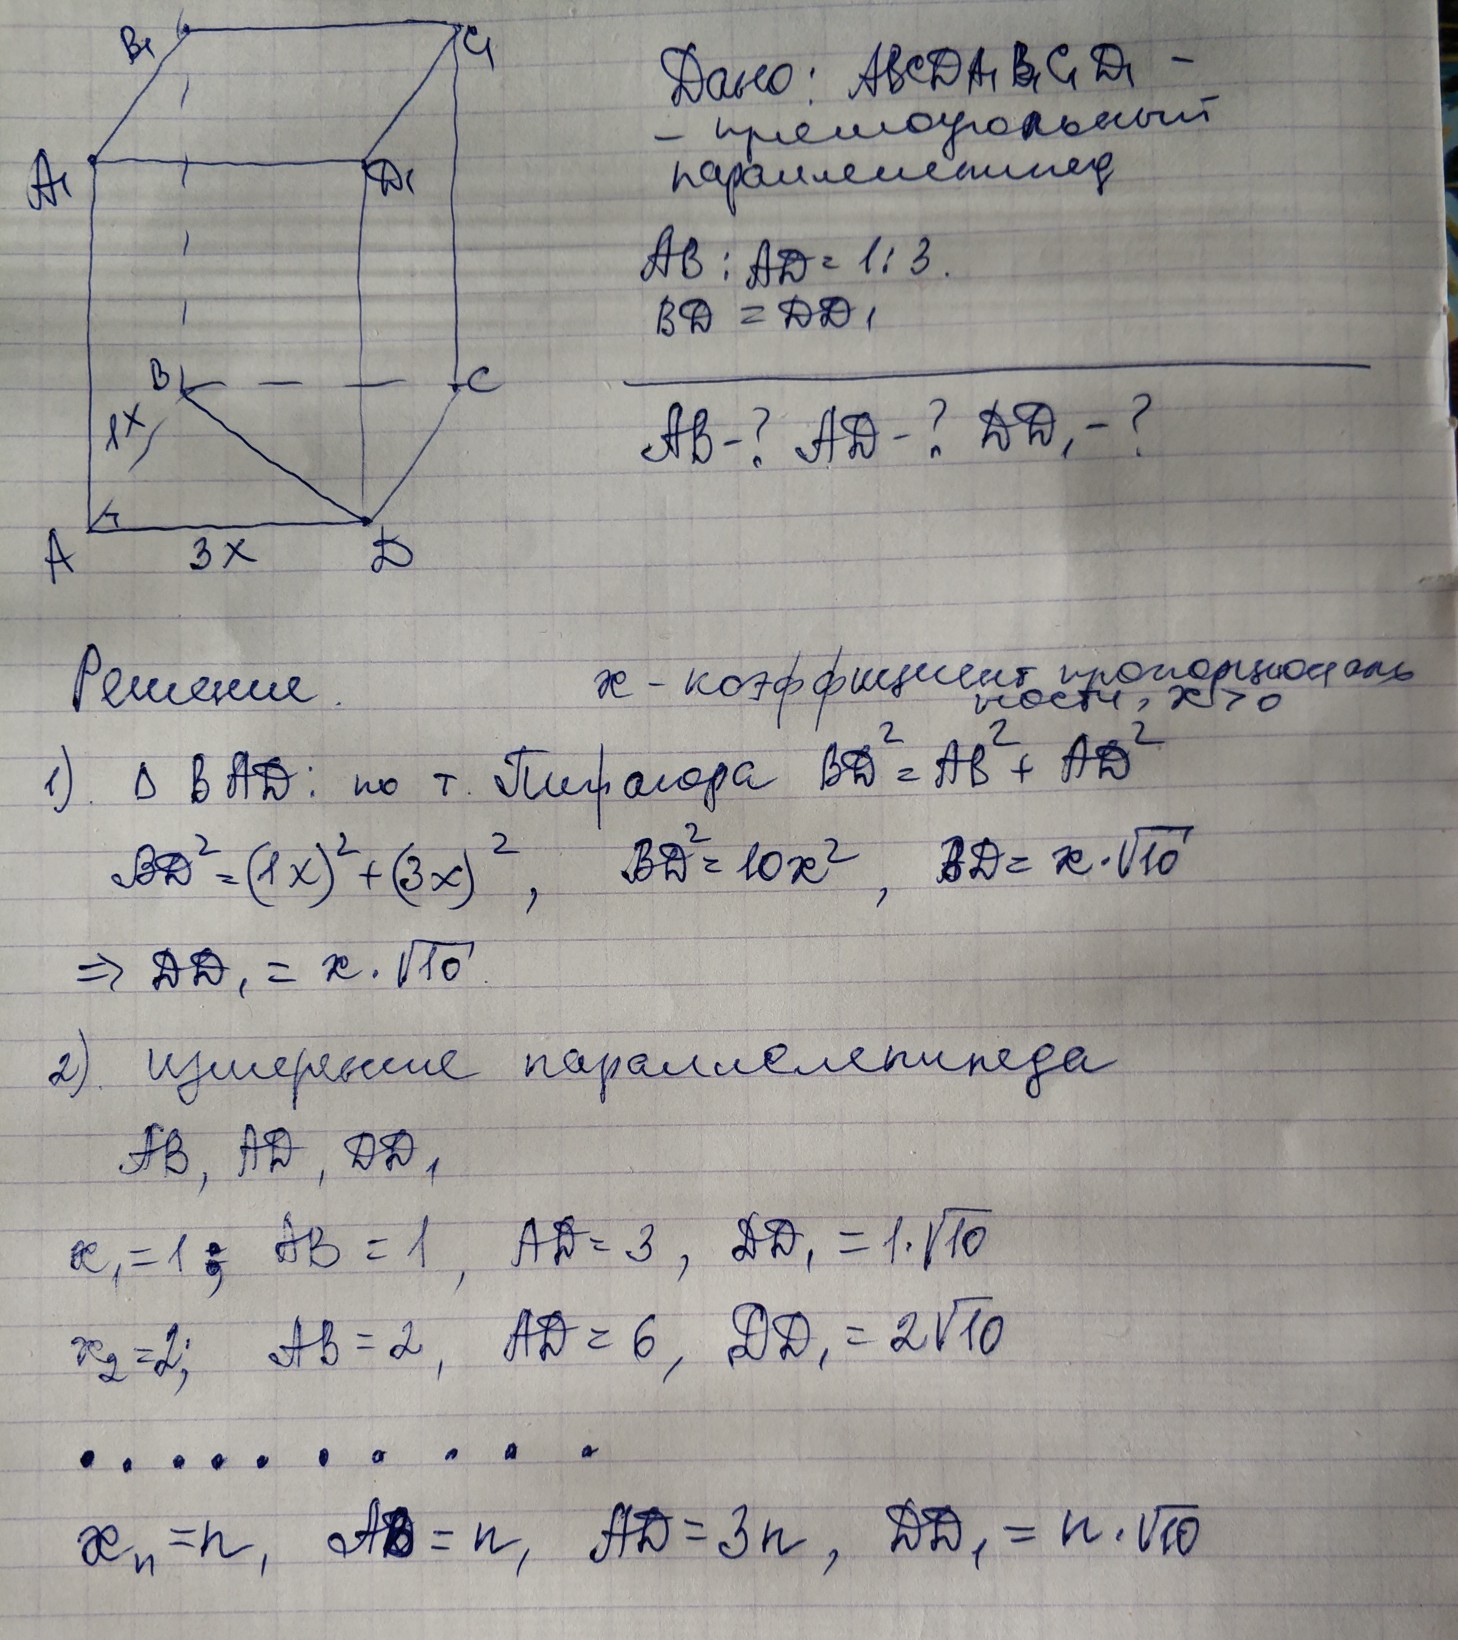 B₁
C₁
A₁
D₁
B
C
1x
A
3x
D
Дано: ABCDA₁B₁C₁D₁ –
– прямоугольный
параллелепипед
AB : AD = 1 : 3.
BD = DD₁
AB – ? AD – ? DD₁ – ?
Решение.
x – коэффициент пропорциональ
ности, x > 0
1). Δ BAD: по т. Пифагора BD² = AB² + AD²
BD² = (1x)² + (3x)², BD² = 10x², BD = x·√10
⇒ DD₁ = x·√10.
2). Измерение параллелепипеда
AB, AD, DD₁
x₁ = 1; AB = 1, AD = 3, DD₁ = 1·√10
x₂ = 2; AB = 2, AD = 6, DD₁ = 2√10
. . . . . . . . . . .
xₙ = n, AB = n, AD = 3n, DD₁ = n·√10